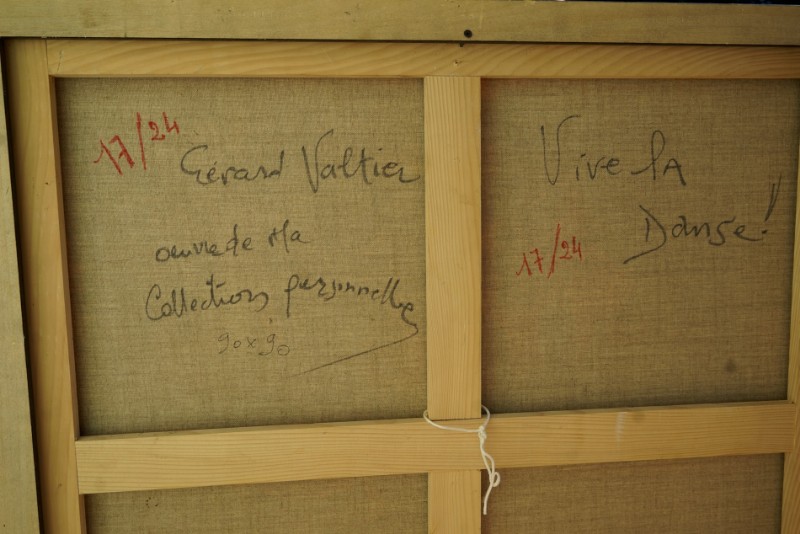 17/24
Gérard Valtier
oeuvre de Ma
Collection personnelle
90x90
Vive lA
Danse!
17/24